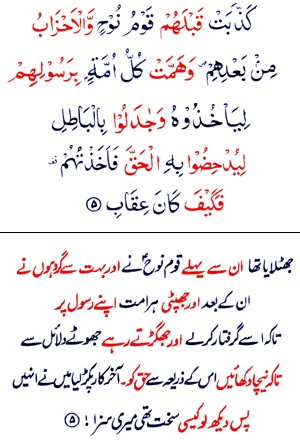 كَذَّبَتْ قَبْلَهُمْ قَوْمُ نُوْحٍ وَّالْاَحْزَابُ
مِنْۢ بَعْدِهِمْ ۪ وَهَمَّتْ كُلُّ اُمَّةٍۭ بِرَسُوْلِهِمْ
لِيَاْخُذُوْهُ وَجٰدَلُوْا بِالْبَاطِلِ
لِيُدْحِضُوْا بِهِ الْحَقَّ فَاَخَذْتُهُمْ ۫
فَكَيْفَ كَانَ عِقَابِ ۝۵
جھٹلایا تھا ان سے پہلے قوم نوحؑ نے اور بہت سے گروہوں نے
ان کے بعد اور جھپٹی ہر امت اپنے رسول پر
تاکہ اسے گرفتار کر لے اور جھگڑتے رہے جھوٹے دلائل سے
تاکہ نیچا دکھائیں اس کے ذریعہ سے حق کو۔ آخر کار پکڑ لیا میں نے انہیں
پس دیکھ لو کیسی سخت تھی میری سزا! ۝۵